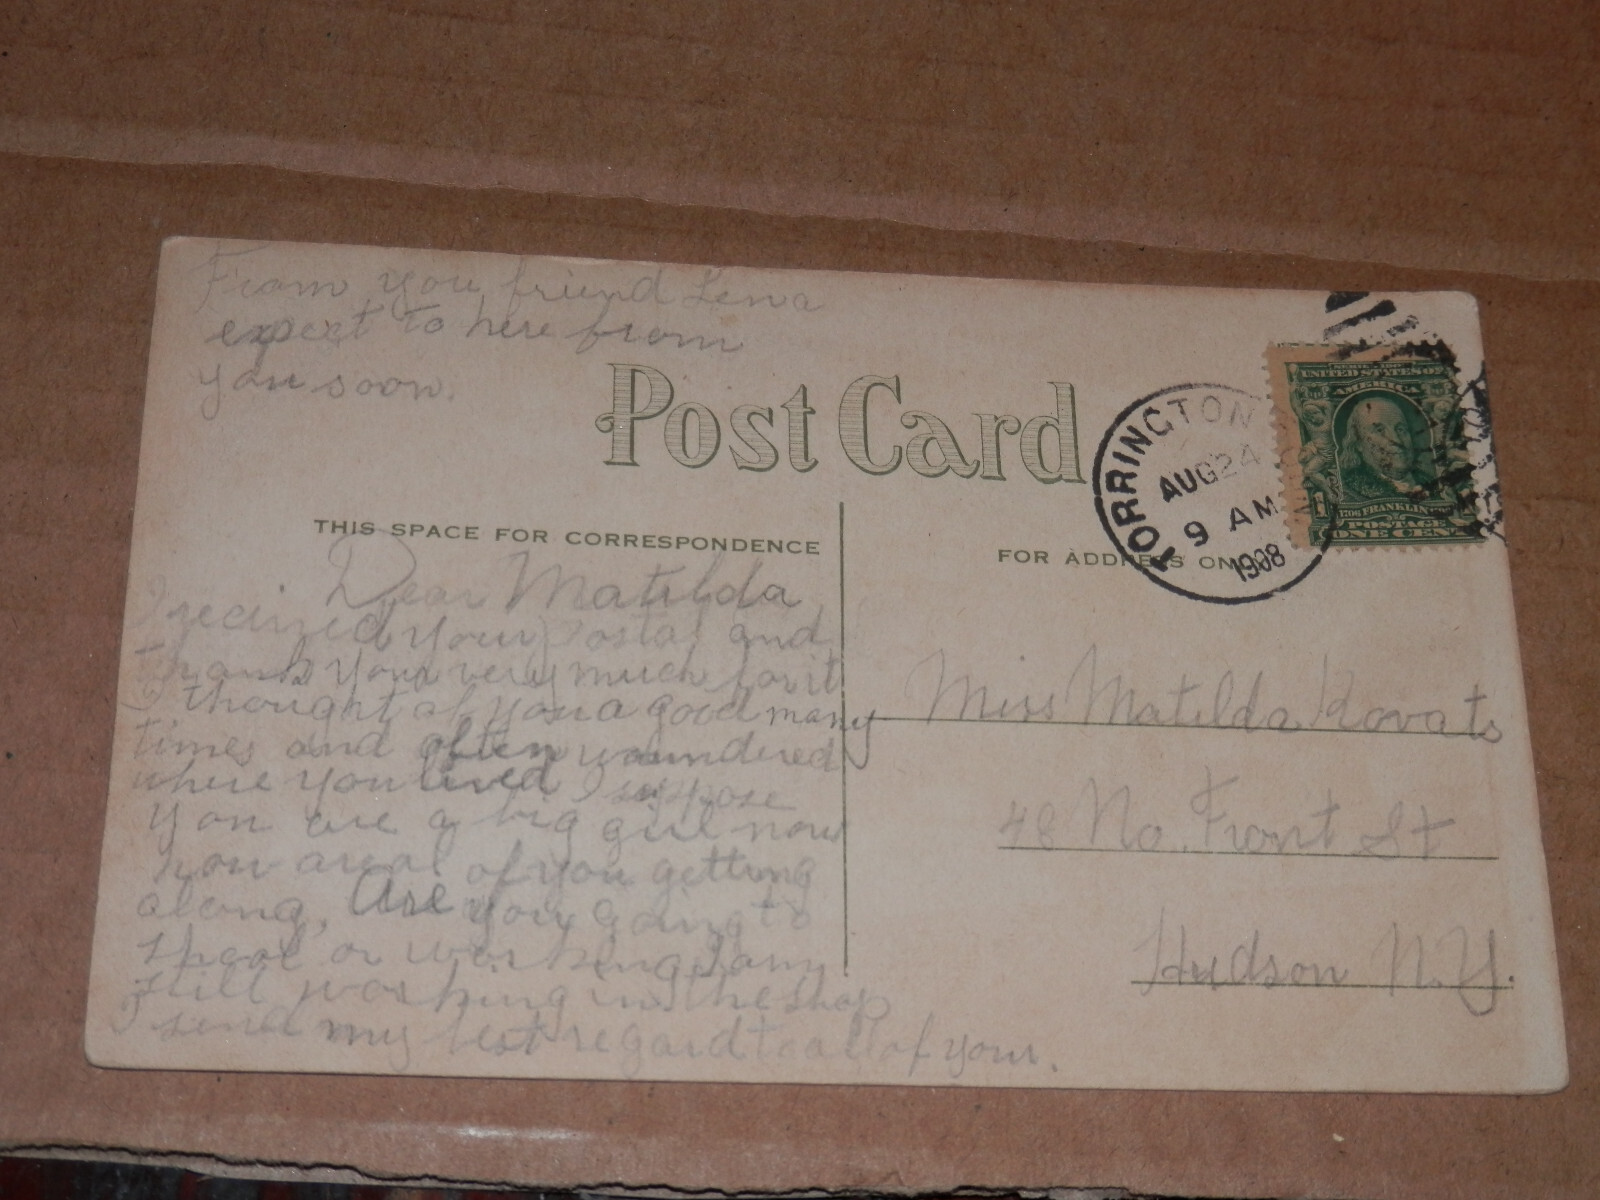 From you friend Lena
expect to here from
you soon.
Post Card
THIS SPACE FOR CORRESPONDENCE
Dear Matilda
I received your Postal and
Thank your very much for it
I thought of you a good many
times and often woundered
where you lived I suppose
you are a big girl now
how are all of you getting
along, Are you going to
shool or working I am
still working in the shop
I send my best regard to all of your.
TORRINGTON
AUG 24
9 AM
1908
SERIES 1902
UNITED STATES OF
AMERICA
1706 FRANKLIN 1790
POSTAGE
ONE CENT
FOR ADDRESS ONLY
Miss Matilda Kovats
48 No. Front St
Hudson N.Y.